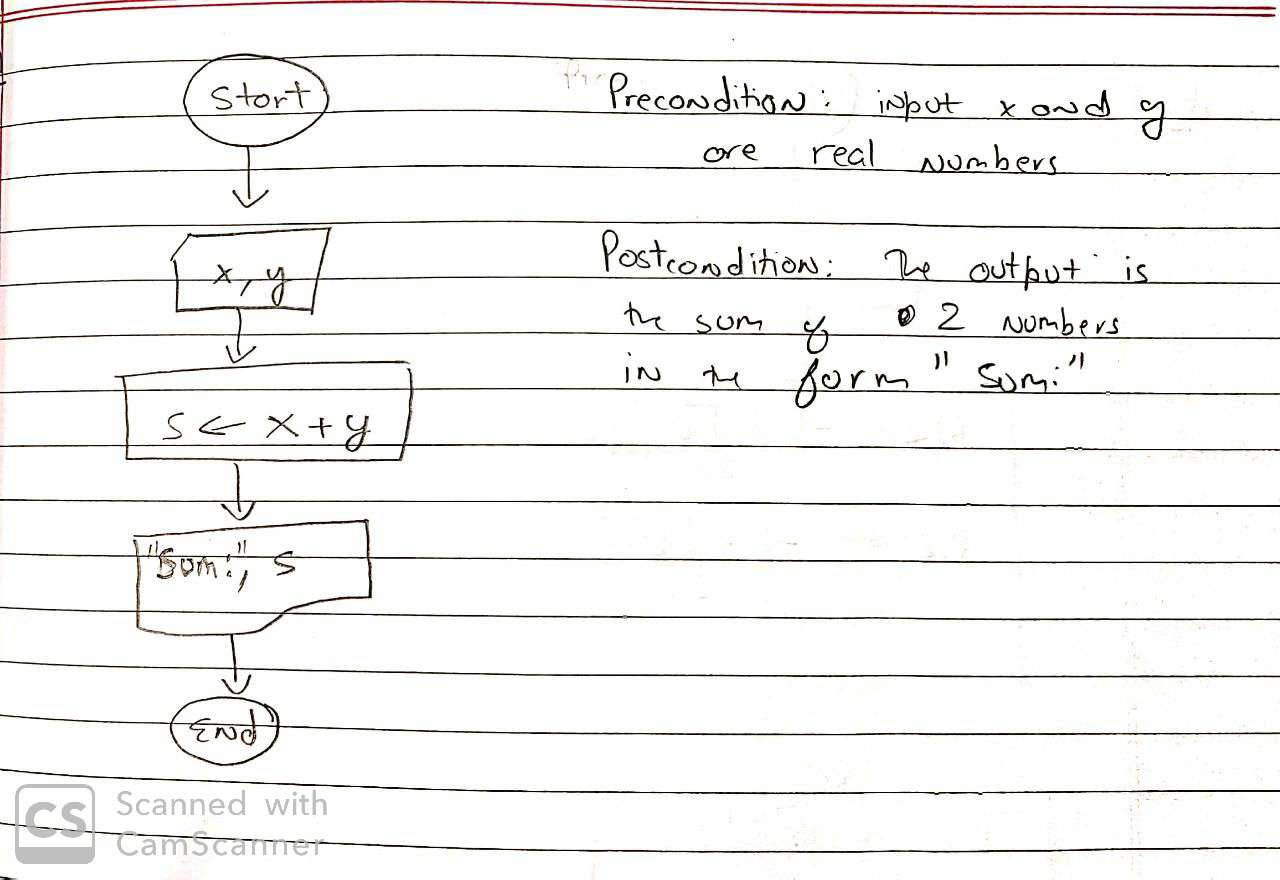 Start
x, y
S ← x + y
"Sum:", S
End
Precondition: input x and y
are real numbers
Postcondition: The output is
the sum of 2 numbers
in the form "Sum:"
CS Scanned with
CamScanner